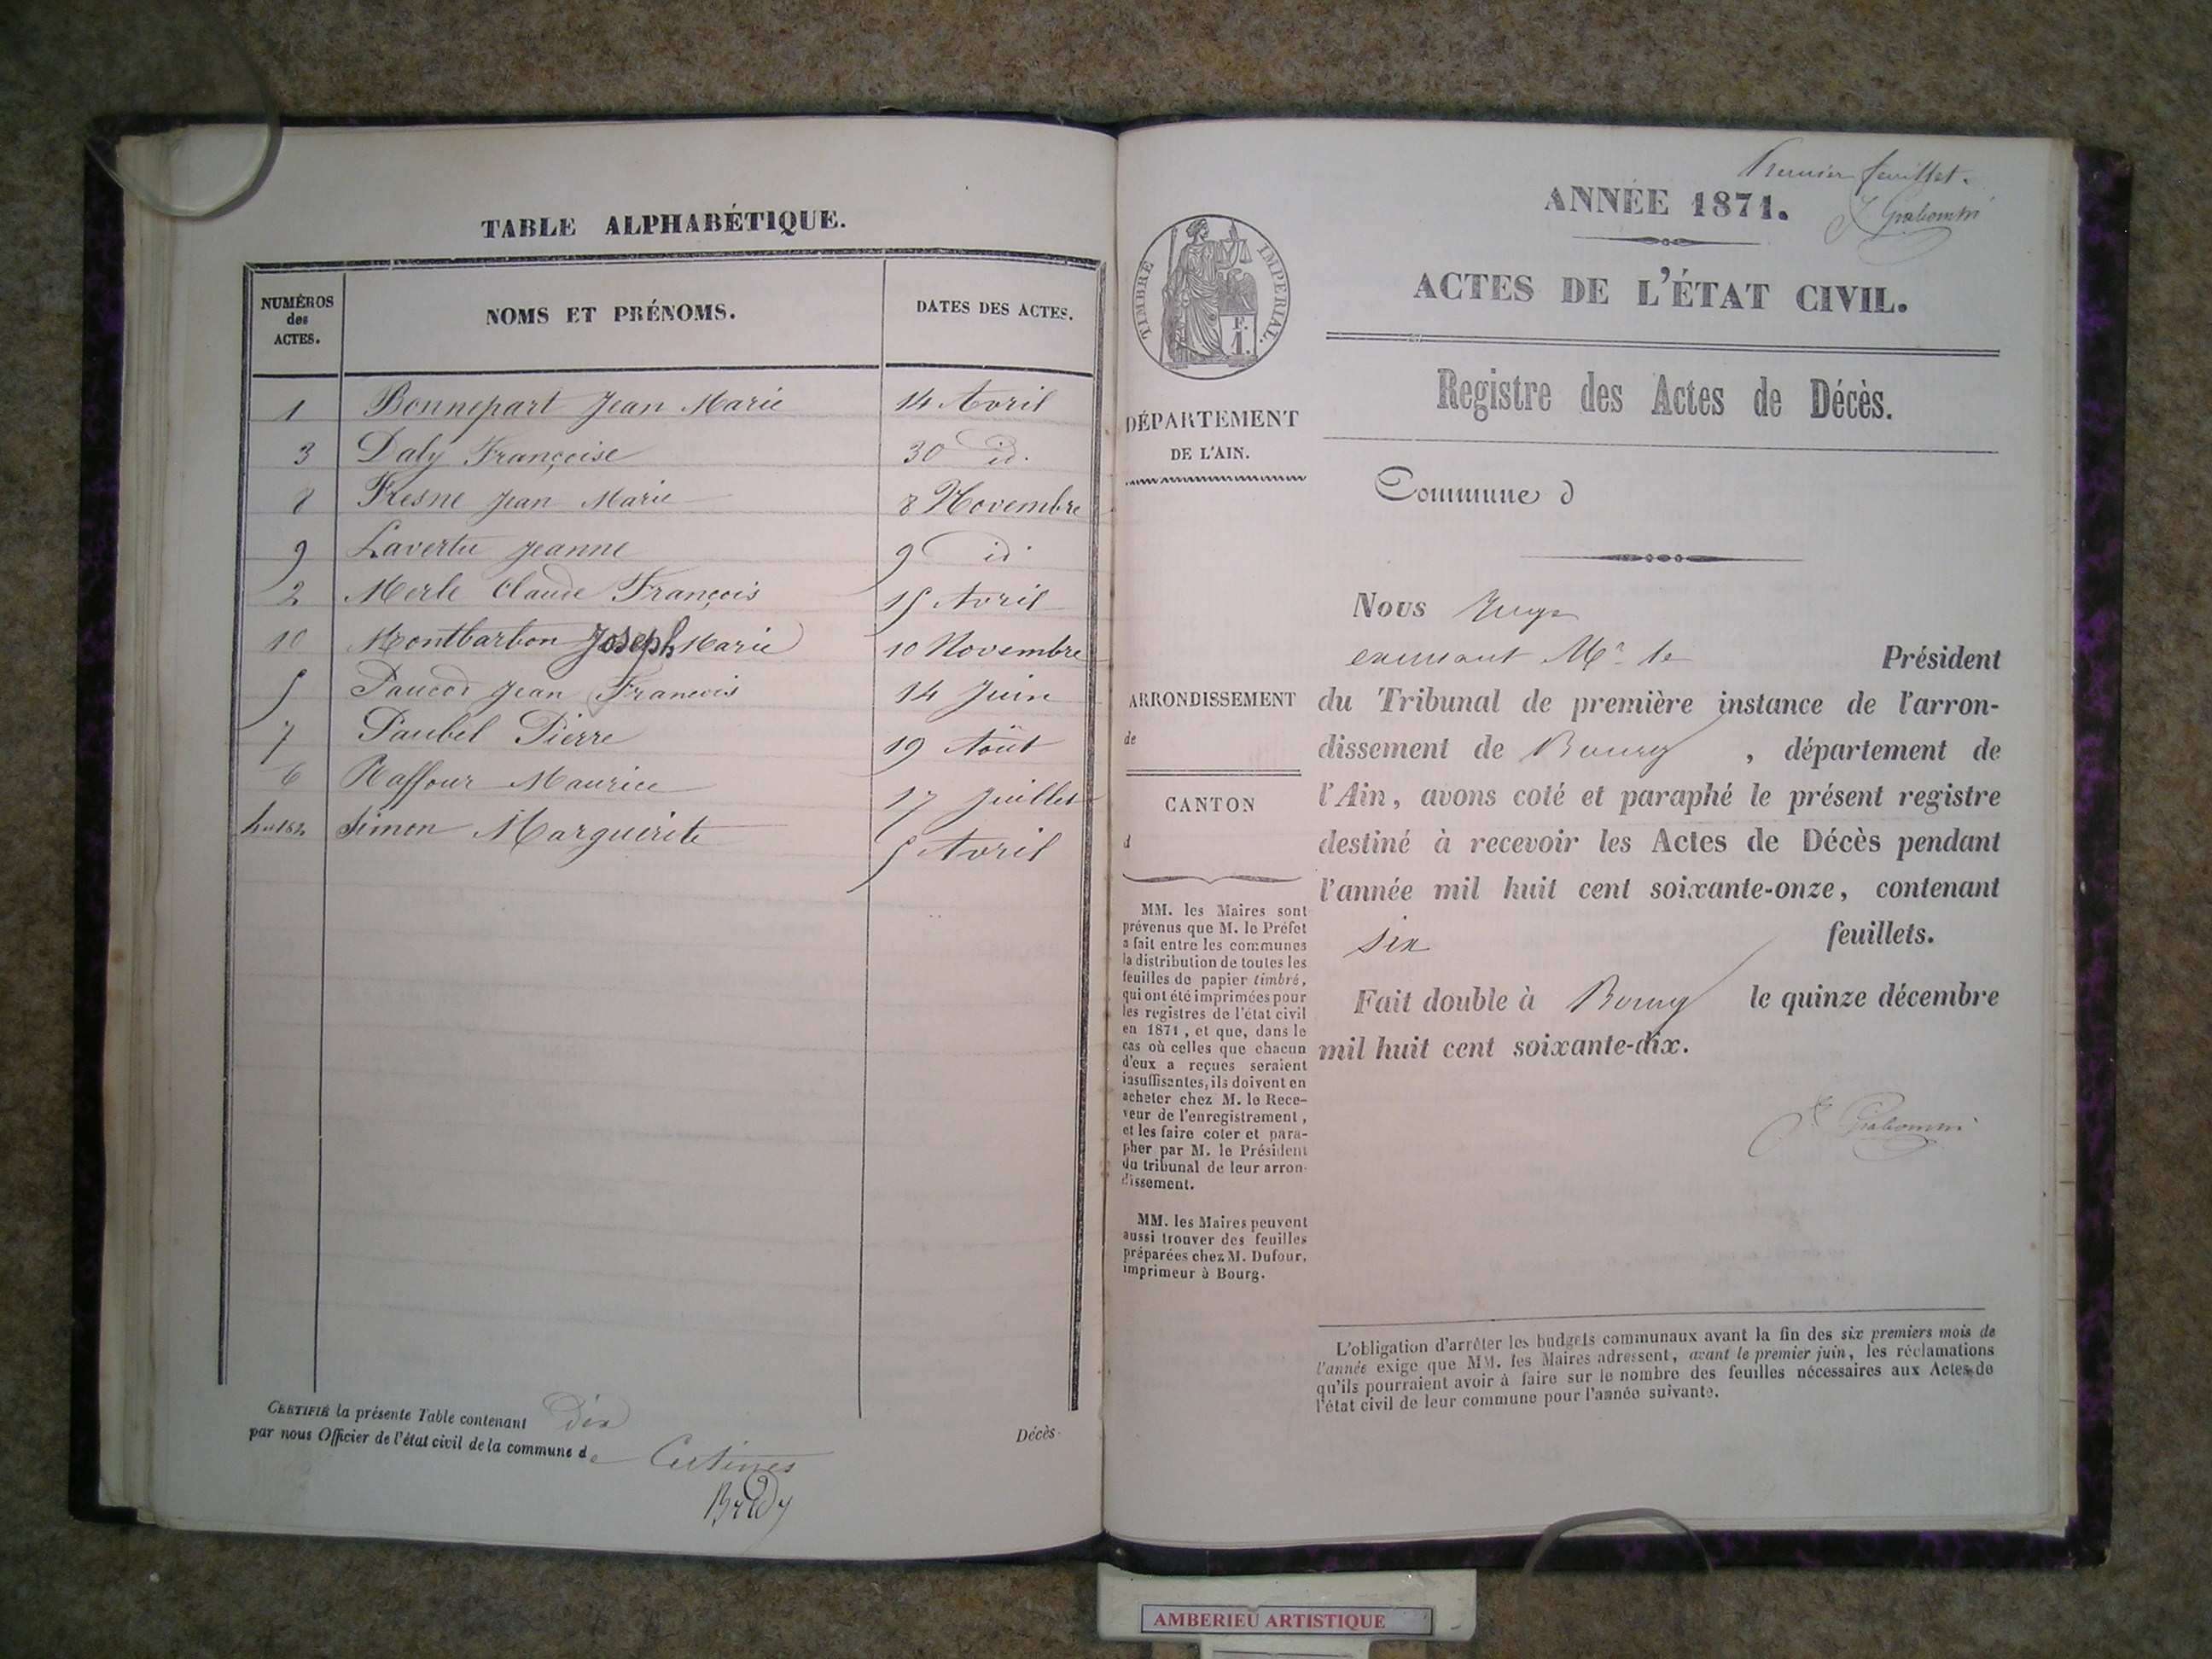 TABLE ALPHABÉTIQUE.
NUMÉROS des ACTES.
NOMS ET PRÉNOMS.
DATES DES ACTES.
1 Bonnepart Jean Marie 14 Avril
3 Daly Françoise 30 id.
8 Fresne Jean Marie 8 Novembre
9 Lavertu Jeanne 9 id.
2 Merle Claude François 15 Avril
10 Montbarbon Joseph Marie 10 Novembre
5 Jean François 14 Juin
7 Paubel Pierre 19 Août
6 Raffour Maurice 17 Juillet
Simon Marguerite 5 Avril
CERTIFIÉ la présente Table contenant dix
par nous Officier de l'état civil de la commune de Certines
Décès
Premier feuillet.
ANNÉE 1871.
ACTES DE L'ÉTAT CIVIL.
Registre des Actes de Décès.
Commune d
TIMBRE IMPERIAL.
F.
1.
DÉPARTEMENT
DE L'AIN.
ARRONDISSEMENT
de
CANTON
d
MM. les Maires sont
prévenus que M. le Préfet
a fait entre les communes
la distribution de toutes les
feuilles de papier timbré,
qui ont été imprimées pour
les registres de l'état civil
en 1871, et que, dans le
cas où celles que chacun
d'eux a reçues seraient
insuffisantes, ils doivent en
acheter chez M. le Rece-
veur de l'enregistrement,
et les faire coter et para-
pher par M. le Président
du tribunal de leur arron-
dissement.
MM. les Maires peuvent
aussi trouver des feuilles
préparées chez M. Dufour,
imprimeur à Bourg.
Nous Juge
Mr le Président
du Tribunal de première instance de l'arron-
dissement de Bourg, département de
l'Ain, avons coté et paraphé le présent registre
destiné à recevoir les Actes de Décès pendant
l'année mil huit cent soixante-onze, contenant
six feuillets.
Fait double à Bourg le quinze décembre
mil huit cent soixante-dix.
L'obligation d'arrêter les budgets communaux avant la fin des six premiers mois de
l'année exige que MM. les Maires adressent, avant le premier juin, les réclamations
qu'ils pourraient avoir à faire sur le nombre des feuilles nécessaires aux Actes de
l'état civil de leur commune pour l'année suivante.
AMBERIEU ARTISTIQUE